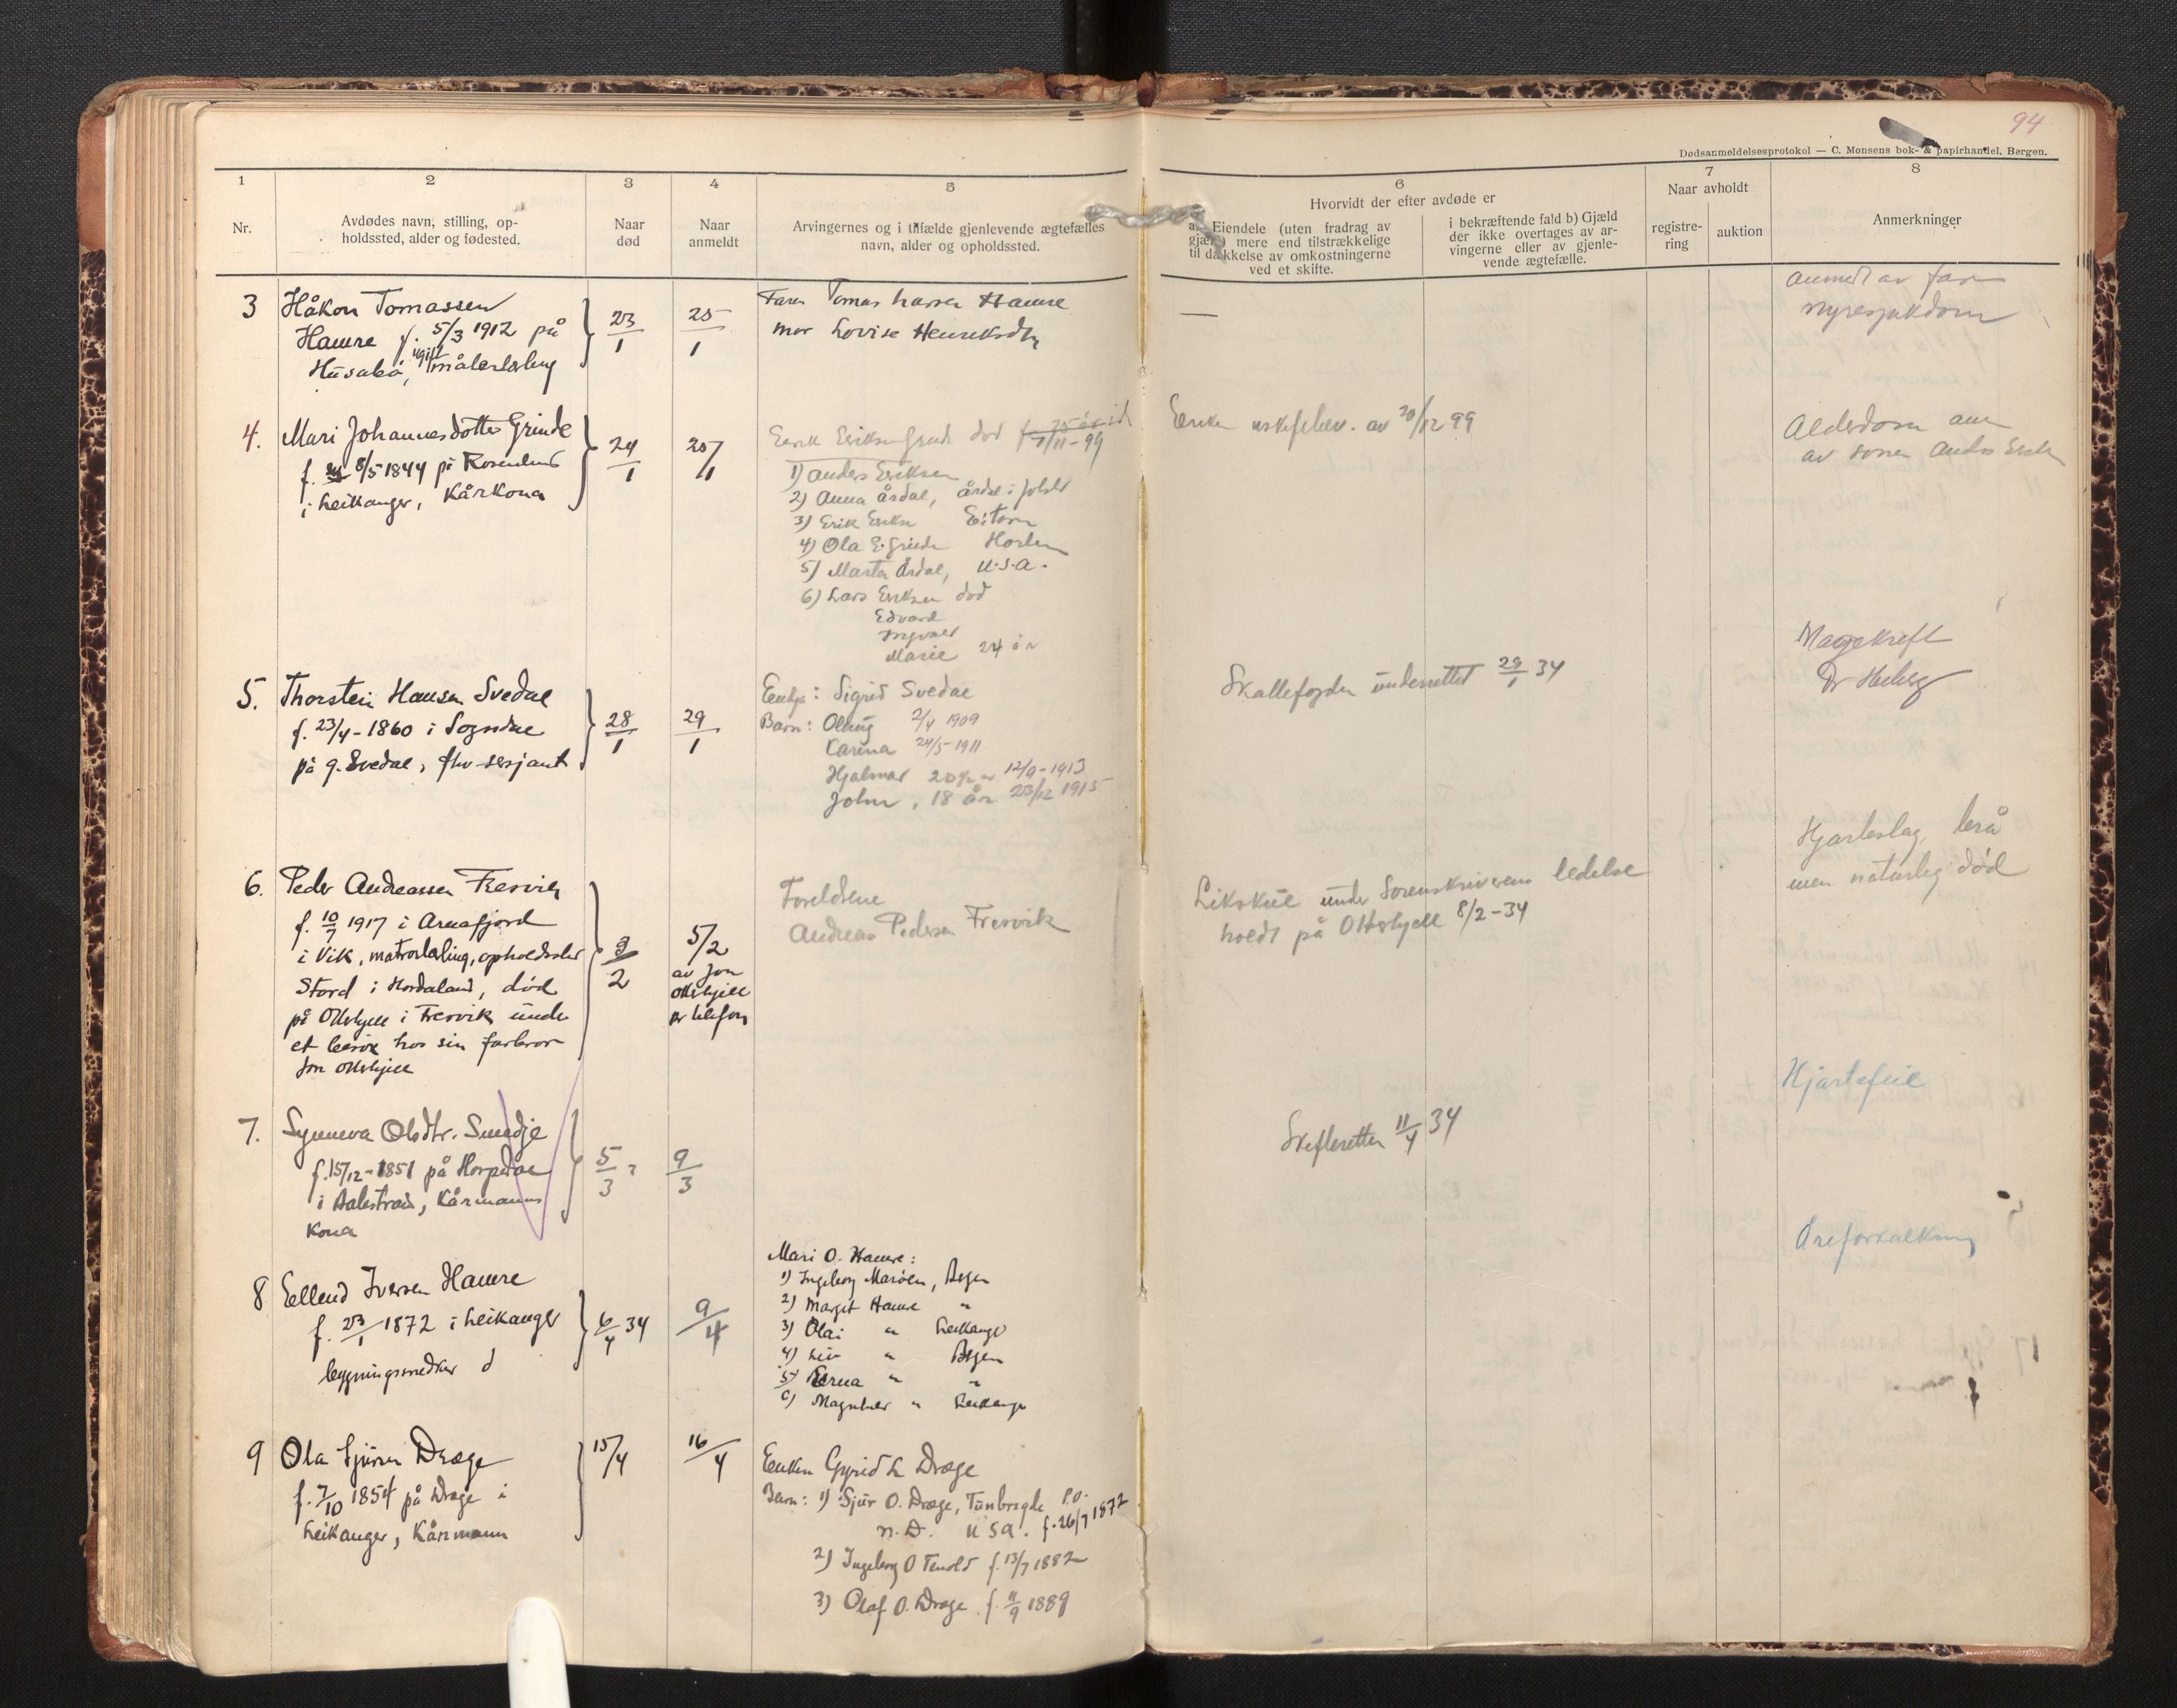 94
Dødsanmeldelsesprotokol — C. Monsens bok- & papirhandel, Bergen.
1
Nr.
2
Avdødes navn, stilling, op-
holdssted, alder og fødested.
3
Naar
død
4
Naar
anmeldt
5
Arvingernes og i tilfælde gjenlevende ægtefælles
navn, alder og opholdssted.
6
Hvorvidt der efter avdøde er
a) Eiendele (uten fradrag av
gjæld) mere end tilstrækkelige
til dækkelse av omkostningerne
ved et skifte.
i bekræftende fald b) Gjæld
der ikke overtages av ar-
vingerne eller av gjenle-
vende ægtefælle.
7
Naar avholdt
registre-
ring
auktion
8
Anmerkninger
3 Håkon Tomassen
Hamre f. 5/3 1912 på
ugift
Husabø, målerlærling
23/1
25/1
Faren Tomas Larsen Hamre
mor Lovise Henriksdtr
—
anmeldt av faren
nyresjukdom
4. Mari Johannesdotter Grinde
f. 8/5 1844 på
i Leikanger, Kårkona
24/1
25/1
Eirik Eriksen Grinde død
7/11-99
1) Anders Eriksen
2) Anna Årdal, Årdal i Jølster
3) Erik Eriksen
4) Ola E. Grinde
5) Marta Årdal, U.S.A.
6) Lars Eriksen død
Edvard
Ingvald
Marie 24 år
Enken uskiftebev. av 20/12 99
Alderdom anm
av sonen Anders Eriksen
5. Thorstein Hansen Svedal
f. 23/4-1860 i Sogndal
på g. Svedal, fhv sersjant
28/1
29/1
Enkja: Sigrid Svedal
Barn: Olaug 2/4 1909
Karina 24/5-1911
Hjalmar 20½ år 12/9-1913
John, 18 år 23/12 1915
Skattefogden underrettet 29/1 34
Magekreft
Dr Heiberg
6. Peder Andreassen Fresvik
f. 10/7 1917 i Arnafjord
i Vik, matroslærling, opholdssted
Stord i Hordaland, død
på Ottskjell i Fresvik under
et besøk hos sin farbror
Jon Ottskjell
3/2
5/2
av Jon
Ottskjell
pr telefon
Foreldrene
Andreas Pedersen Fresvik
Likskue under Sorenskriverens ledelse
holdt på Ottskjell 8/2-34
Hjarteslag, brå
men naturlig død
7. Synneva Olsdtr. Smedje
f. 15/12-1851 på Horpedal
i Balestrand, Kårmanns
kona
5/3
9/3
Skifteretten 11/4 34
Hjartefeil
8 Eellend Iversen Hamre
f. 23/1 1872 i Leikanger
bygningsmedker
6/4 34
9/4
Mari O. Hamre:
1) Ingeborg Marøen, Bergen
2) Margit Hamre "
3) Olai " Leikanger
4) Liv " Bergen
5) Erna " "
6) Magnhild " Leikanger
Åreforkalkning
9 Ola Sjursen Dræge
f. 7/10 1854 på Dræge i
Leikanger, Kårmann
15/4
16/4
Enken Gyrid L Dræge
Barn: 1) Sjur O. Dræge, Tunbridge P.O.
N.D. USA. f. 26/7 1877
2) Ingeborg O Tenold f. 13/7 1882
3) Olaf O. Dræge f. 11/9 1889